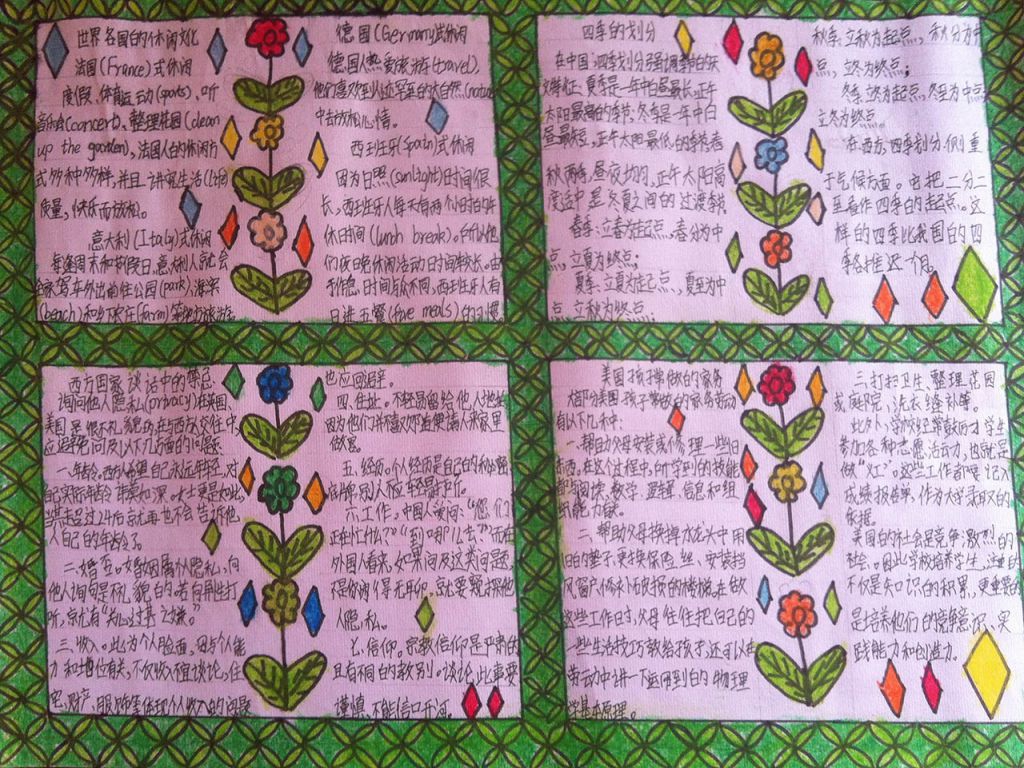 世界各国的休闲文化
法国(France)式休闲
度假、体育运动(sports)、听
音乐会(concert)、整理花园(clean
up the garden),法国人的休闲方
式多种多样,并且讲究生活(life)
质量,快乐而放松。
意大利(Italy)式休闲
每逢周末和节假日,意大利人就会
全家驾车外出前往公园(park)海滨
(beach)和农庄(farm)等地方
德国(German)式休闲
德国人热爱旅游(travel),
他们喜欢到人迹罕至的大自然(nature)
中去放松心情。
西班牙(Spain)式休闲
因为日照(sunlight)时间很
长,西班牙人每天有两个小时的午
休时间(lunch break)。所以他
们夜晚休闲活动时间较长。由
于作息时间与众不同,西班牙人有
日进五餐(five meals)的习惯
四季的划分
在中国,四季划分强调季节的天
文特征:夏季是一年中白昼最长、正午
太阳最高的季节;冬季是一年中白
昼最短,正午太阳最低的季节。春
秋两季,昼夜均匀,正午太阳高
度适中,是冬夏之间的过渡季节。
春季:立春为起点,春分为中
点,立夏为终点;
夏季:立夏为起点,夏至为中
点,立秋为终点;
秋季:立秋为起点,秋分为中
点,立冬为终点;
冬季:立冬为起点,冬至为中点,
立冬为终点。
在西方,四季划分侧重
于气候方面。它把二分二
至看作四季的起点。这
样的四季比我国的四
季各推迟一个月。
西方国家谈话中的禁忌
询问他人隐私(privacy)在英国、
美国是很不礼貌的,在与西方人交往中,
应避免问及以下几方面的问题:
一、年龄。西方人希望自己永远年轻,对
自己实际年龄讳莫如深。女士更是如此,
当其超过24岁后就再也不会告诉他
人自己的年龄了。
二、婚否。婚姻属个人隐私,向
他人询问是不礼貌的。若向异性打
听,就有“关心过甚”之嫌。
三、收入。此为个人脸面,因与个人能
力和地位有关,不仅收入不宜谈论,住
宅、财产、服饰等体现个人收入的问题
也应回避。
四、住址。不轻易留给他人地址
因为他们并不喜欢邀请人来家里
做客。
五、经历。个人经历是自己的秘密
底牌,别人不应轻易打听。
六、工作。中国人爱问:“您们
正在忙什么?”“到哪儿去?”而在
外国人看来,如果问及这类问题
不是你闲得无聊,就是要窥探他
人隐私。
七、信仰。宗教信仰是严肃的
且有不同的教别。谈论此事要
谨慎,不能信口开河。
美国孩子常做的家务
大部分美国孩子常做的家务劳动
有以下几种:
一、帮助父母安装或修理一些旧
东西。在这过程中,所学到的技能
有阅读、数学、逻辑、信息和组
织能力等。
二、帮助父母换掉水龙头中用
旧的垫子、更换保险丝、安装挡
风窗户、修补破损的楼梯。在做
这些工作时,父母往往把自己的
一些生活技巧教给孩子,还可以在
劳动中讲一下运用到的物理
学基本原理。
三、打扫卫生、整理花园
或庭院、洗衣、缝补等。
此外,学校经常鼓励学生
参加各种志愿活动,也就是
做“义工”。这些工作都要记入
成绩报告单,作为大学录取的
依据。
美国的社会是竞争激烈的
社会。因此学校培养学生,注重的
不仅是知识的积累,更重要的
是培养他们的竞争意识、实
践能力和创造力。